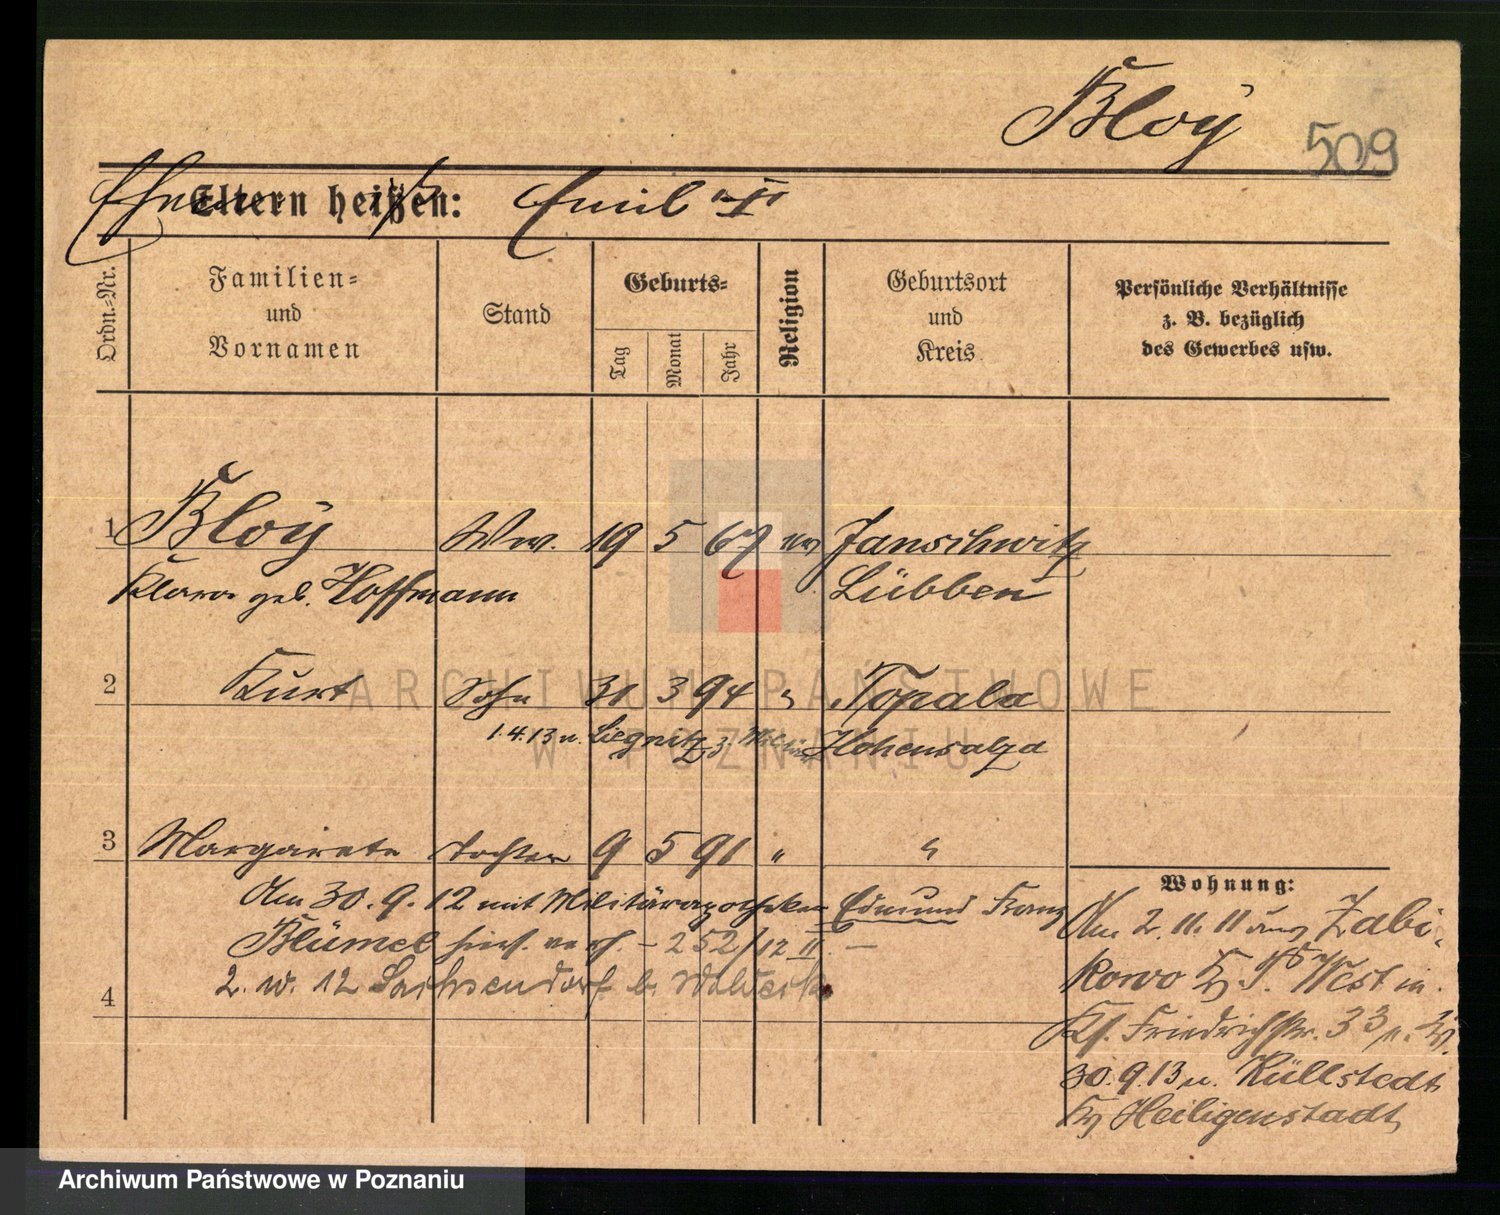 Bloÿ 509
Eltern heißen: Emil "I"
Ordn.-Nr.
Familien-
und
Vornamen
Stand
Geburts-
Tag
Monat
Jahr
Religion
Geburtsort
und
Kreis
Persönliche Verhältnisse
z. B. bezüglich
des Gewerbes usw.
1 Bloÿ Ww. 19 5 67 ev Janschwitz
Klara geb. Hoffmann Lübben
2 Kurt Sohn 31 3 94 " Topola
1.4.13 n. Liegnitz z. Hohensalza
3 Margarete Tochter 9 5 91 " "
Am 30.9.12 mit Militärapotheker Edmund Franz
Blümel hier verh. - 252/12 II -
2. 10. 12 Sachsendorf b.
4
Wohnung:
Am 2.11.11 aus Zabi-
kowo Kr. P. West in
Ks. Friedrichstr. 33
30.9.13 n. Küllstedt
Kr Heiligenstadt
ARCHIWUM PAŃSTWOWE
W POZNANIU
Archiwum Państwowe w Poznaniu